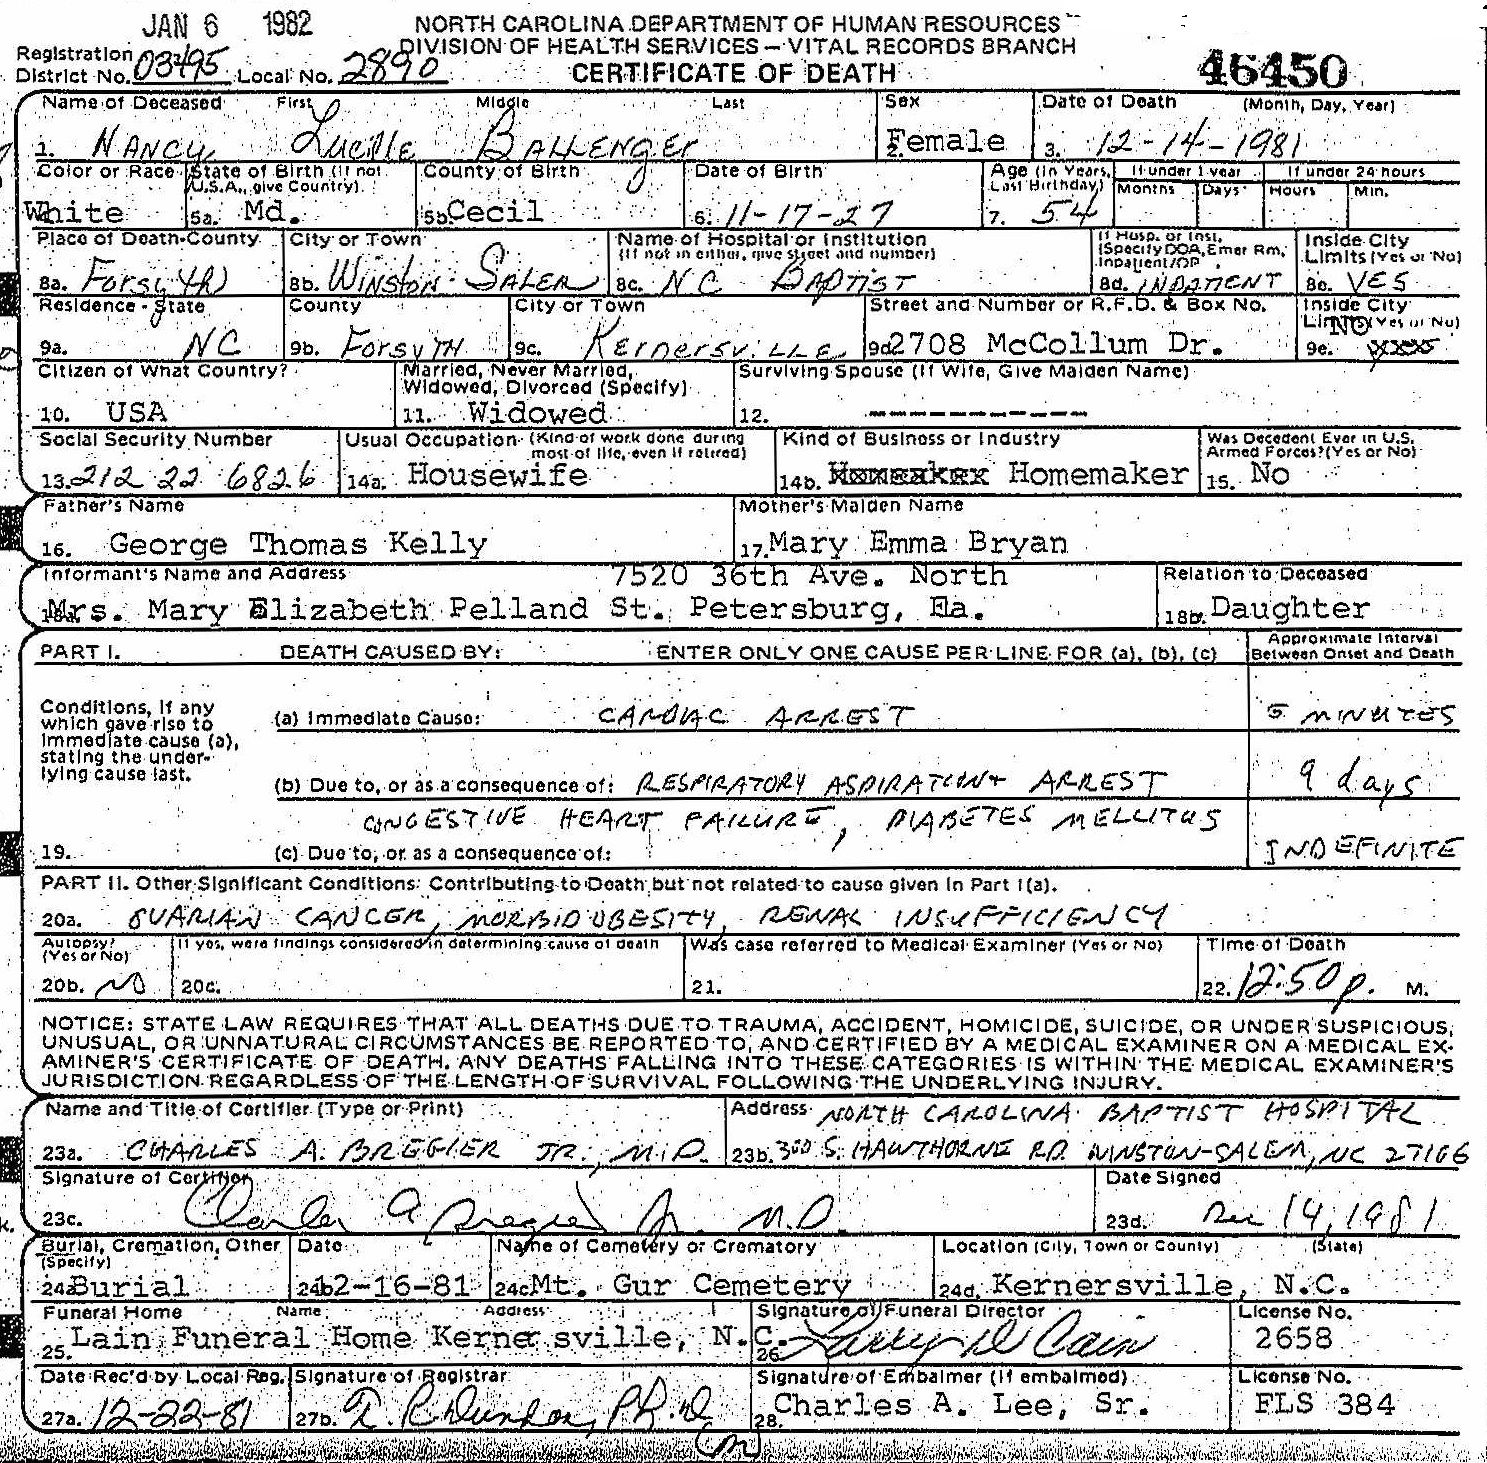 JAN 6 1982
NORTH CAROLINA DEPARTMENT OF HUMAN RESOURCES
DIVISION OF HEALTH SERVICES – VITAL RECORDS BRANCH
Registration District No. 03495 Local No. 2890 CERTIFICATE OF DEATH 46450
Name of Deceased First Middle Last Sex Date of Death (Month, Day, Year)
1. NANCY Lucille BALLENGER 2. Female 3. 12-14-1981
Color or Race State of Birth (If not U.S.A., give Country) County of Birth Date of Birth Age (In Years, Last Birthday) If under 1 year If under 24 hours
Months Days Hours Min.
White 5a. Md. 5b Cecil 6. 11-17-27 7. 54
Place of Death-County City or Town Name of Hospital or Institution (If not in either, give street and number) If Hosp. or Inst. (Specify DOA, Emer Rm, Inpatient/OP Inside City Limits (Yes or No)
8a. Forsyth 8b. Winston-Salem 8c. NC Baptist 8d. INPATIENT 8e. YES
Residence - State County City or Town Street and Number or R.F.D. & Box No. Inside City Limits (Yes or No)
9a. NC 9b. Forsyth 9c. Kernersville 9d 2708 McCollum Dr. 9e. NO
Citizen of What Country? Married, Never Married, Widowed, Divorced (Specify) Surviving Spouse (If Wife, Give Maiden Name)
10. USA 11. Widowed 12. ------------
Social Security Number Usual Occupation (Kind of work done during most of life, even if retired) Kind of Business or Industry Was Decedent Ever in U.S. Armed Forces? (Yes or No)
13. 212 22 6826 14a. Housewife 14b. Homemaker 15. No
Father's Name Mother's Maiden Name
16. George Thomas Kelly 17. Mary Emma Bryan
Informant's Name and Address 7520 36th Ave. North Relation to Deceased
18a. Mrs. Mary Elizabeth Pelland St. Petersburg, Fla. 18b. Daughter
PART I. DEATH CAUSED BY: ENTER ONLY ONE CAUSE PER LINE FOR (a), (b), (c) Approximate Interval Between Onset and Death
Conditions, if any which gave rise to immediate cause (a), stating the underlying cause last.
(a) Immediate Cause: CARDIAC ARREST 5 MINUTES
(b) Due to, or as a consequence of: RESPIRATORY ASPIRATION + ARREST 9 days
CONGESTIVE HEART FAILURE, DIABETES MELLITUS
19. (c) Due to, or as a consequence of: INDEFINITE
PART II. Other Significant Conditions: Contributing to Death but not related to cause given in Part I(a).
20a. OVARIAN CANCER, MORBID OBESITY, RENAL INSUFFICIENCY
Autopsy? (Yes or No) If yes, were findings considered in determining cause of death Was case referred to Medical Examiner (Yes or No) Time of Death
20b. NO 20c. 21. 22. 12:50 p. M.
NOTICE: STATE LAW REQUIRES THAT ALL DEATHS DUE TO TRAUMA, ACCIDENT, HOMICIDE, SUICIDE, OR UNDER SUSPICIOUS,
UNUSUAL, OR UNNATURAL CIRCUMSTANCES BE REPORTED TO, AND CERTIFIED BY A MEDICAL EXAMINER ON A MEDICAL EX-
AMINER'S CERTIFICATE OF DEATH. ANY DEATHS FALLING INTO THESE CATEGORIES IS WITHIN THE MEDICAL EXAMINER'S
JURISDICTION REGARDLESS OF THE LENGTH OF SURVIVAL FOLLOWING THE UNDERLYING INJURY.
Name and Title of Certifier (Type or Print) Address NORTH CAROLINA BAPTIST HOSPITAL
23a. CHARLES A. BREGIER JR., M.D. 23b. 300 S. HAWTHORNE RD. WINSTON-SALEM, NC 27106
Signature of Certifier Date Signed
23c. Charles A Bregier Jr. M.D. 23d. Dec 14, 1981
Burial, Cremation, Other (Specify) Date Name of Cemetery or Crematory Location (City, Town or County) (State)
24a Burial 24b 12-16-81 24c Mt. Gur Cemetery 24d. Kernersville, N.C.
Funeral Home Name Address Signature of Funeral Director License No.
25. Lain Funeral Home Kernersville, N.C. 26 Larry D Cain 2658
Date Rec'd by Local Reg. Signature of Registrar Signature of Embalmer (If embalmed) License No.
27a. 12-22-81 27b. 28. Charles A. Lee, Sr. FLS 384